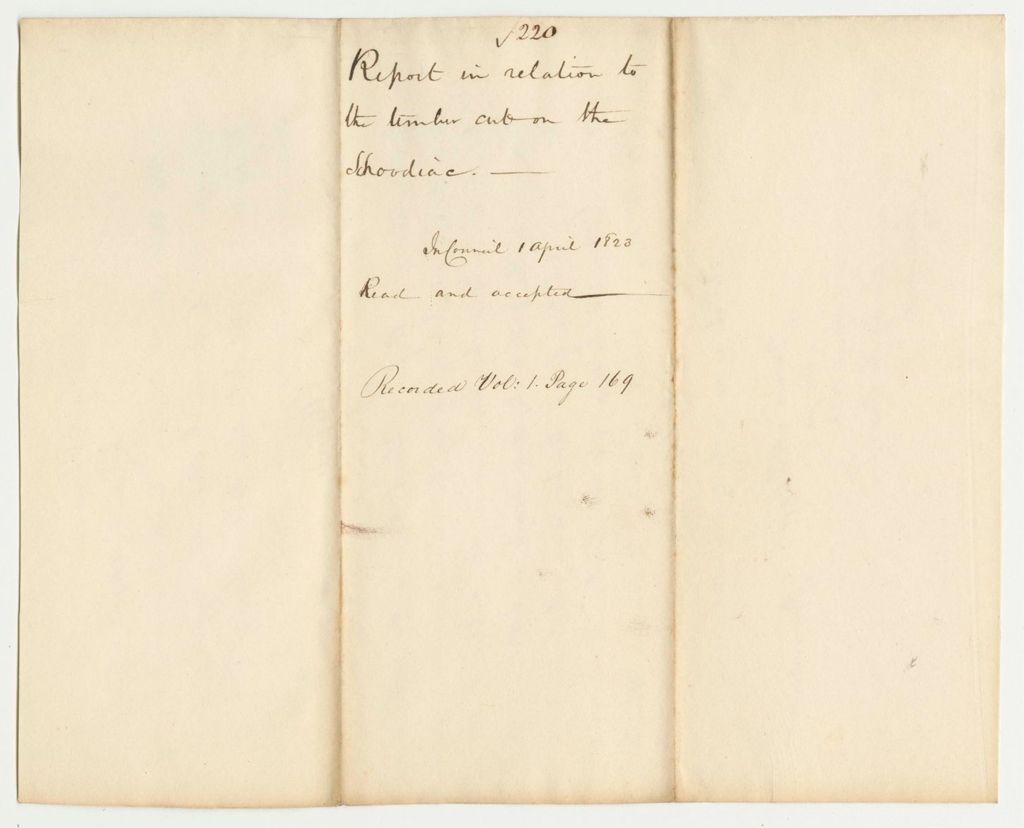 220
Report in relation to
the timber cut on the
Schoodiac. —
In Council 1 April 1823
Read and accepted —
Recorded Vol: 1. Page 169